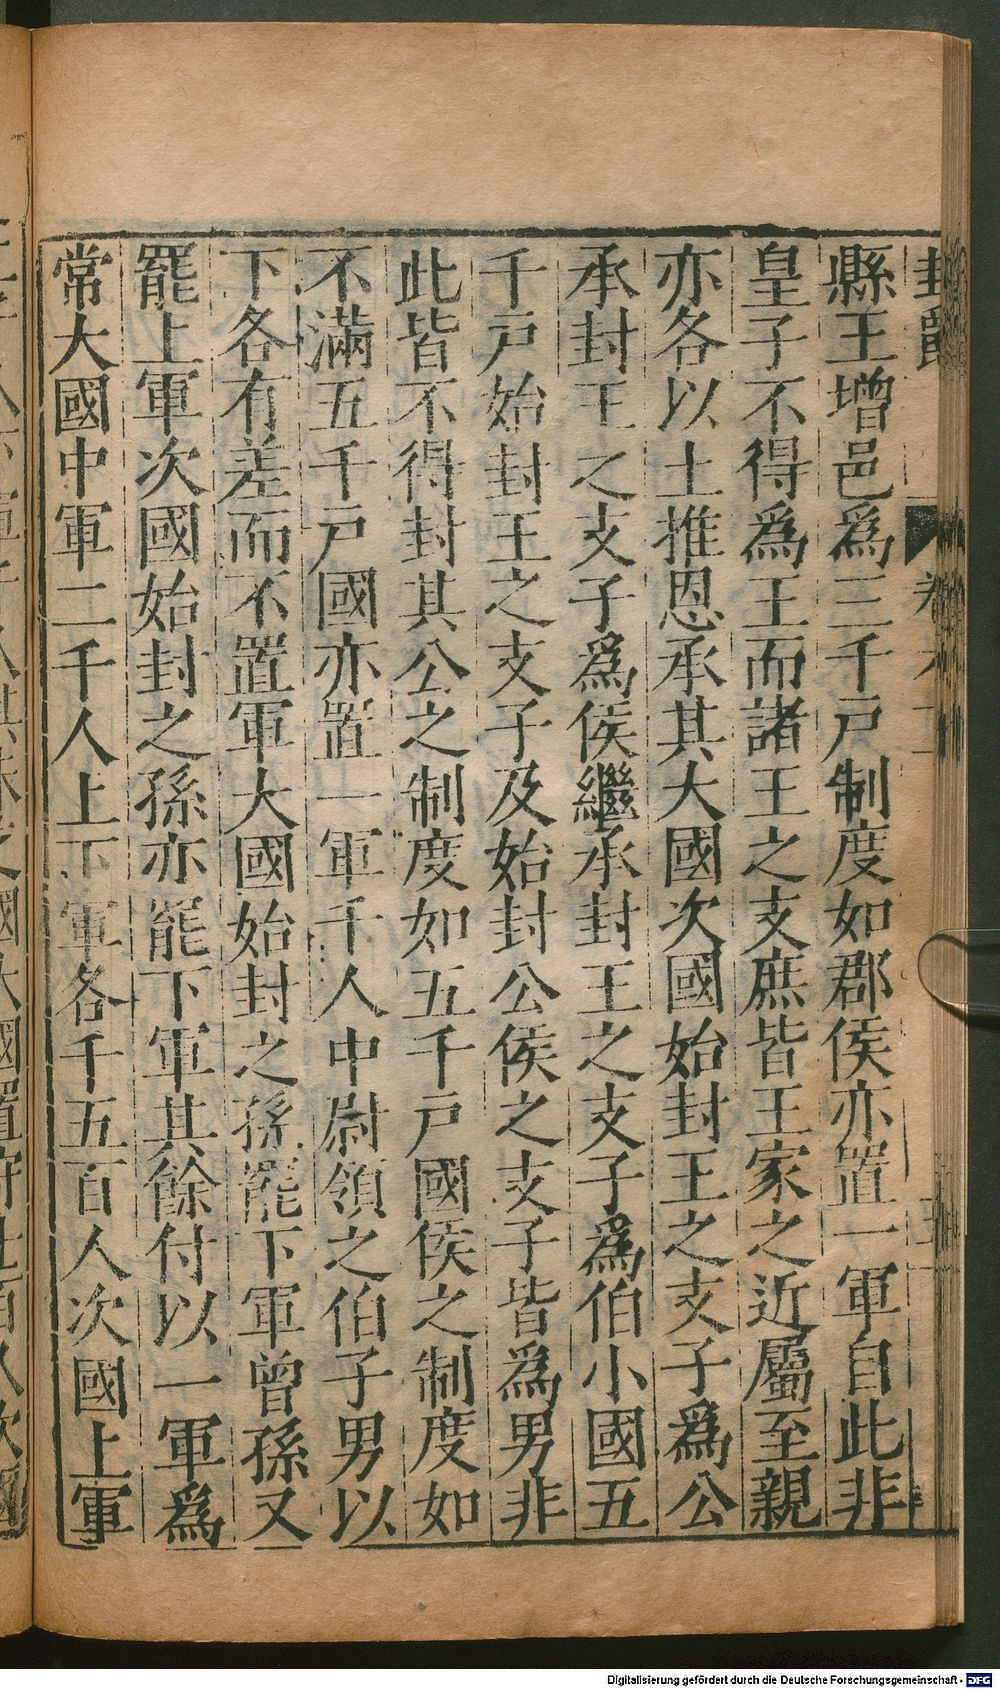 縣王增邑爲三千戸制度如郡侯亦置一軍自此非
皇子不得爲王而諸王之支庶皆王家之近屬至親
亦各以土推恩承其大國次國始封王之支子爲公
承封王之支子爲侯繼承封王之支子爲伯小國五
千戸始封王之支子及始封公侯之支子皆爲男非
此皆不得封其公之制度如五千戸國侯之制度如
不滿五千戸國亦置一軍千人中尉領之伯子男以
下各有差而不置軍大國始封之孫罷下軍曾孫又
罷上軍次國始封之孫亦罷下軍其餘付以一軍爲
常大國中軍二千人上下軍各千五百人次國上軍
Digitalisierung gefördert durch die Deutsche Forschungsgemeinschaft - DFG